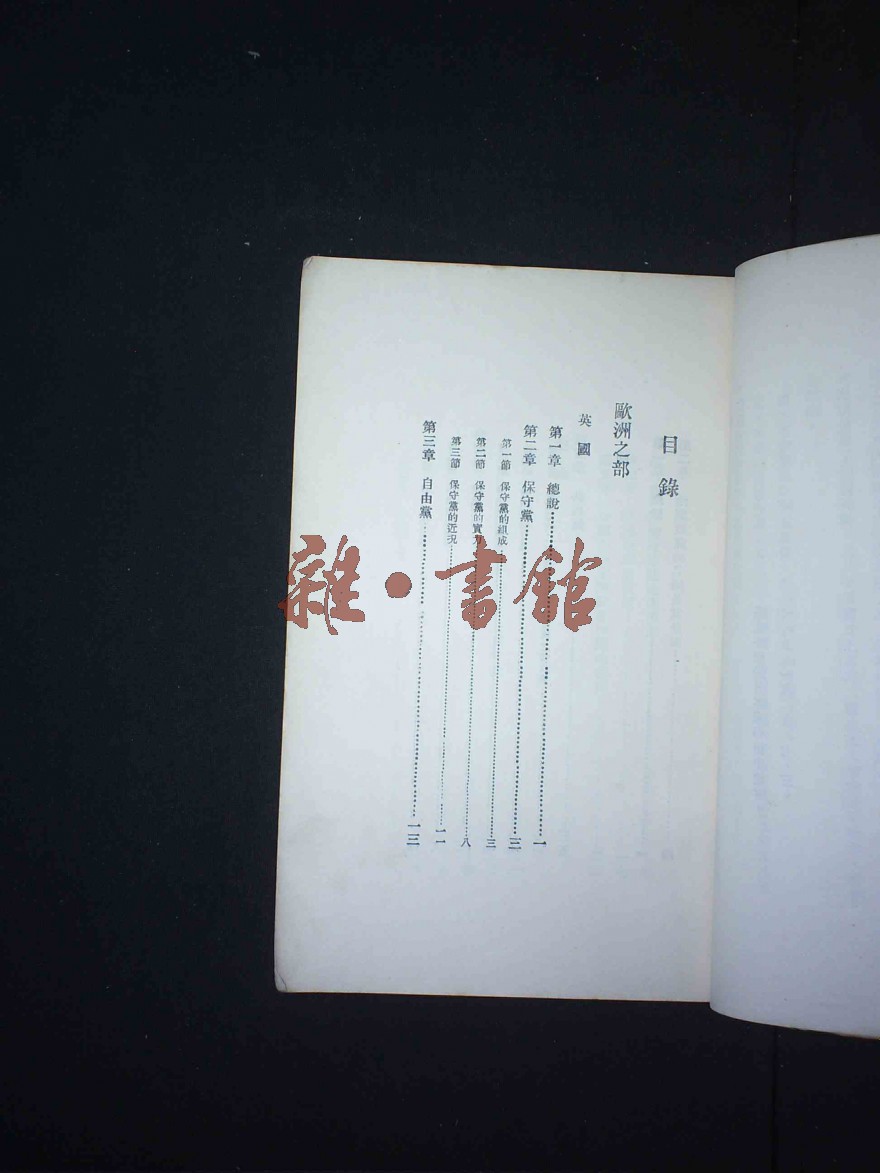 目錄
歐洲之部
英國
第一章 總說 一
第二章 保守黨 三
第一節 保守黨的組成 三
第二節 保守黨的實力 八
第三節 保守黨的近況 一一
第三章 自由黨 一三
雜·書館